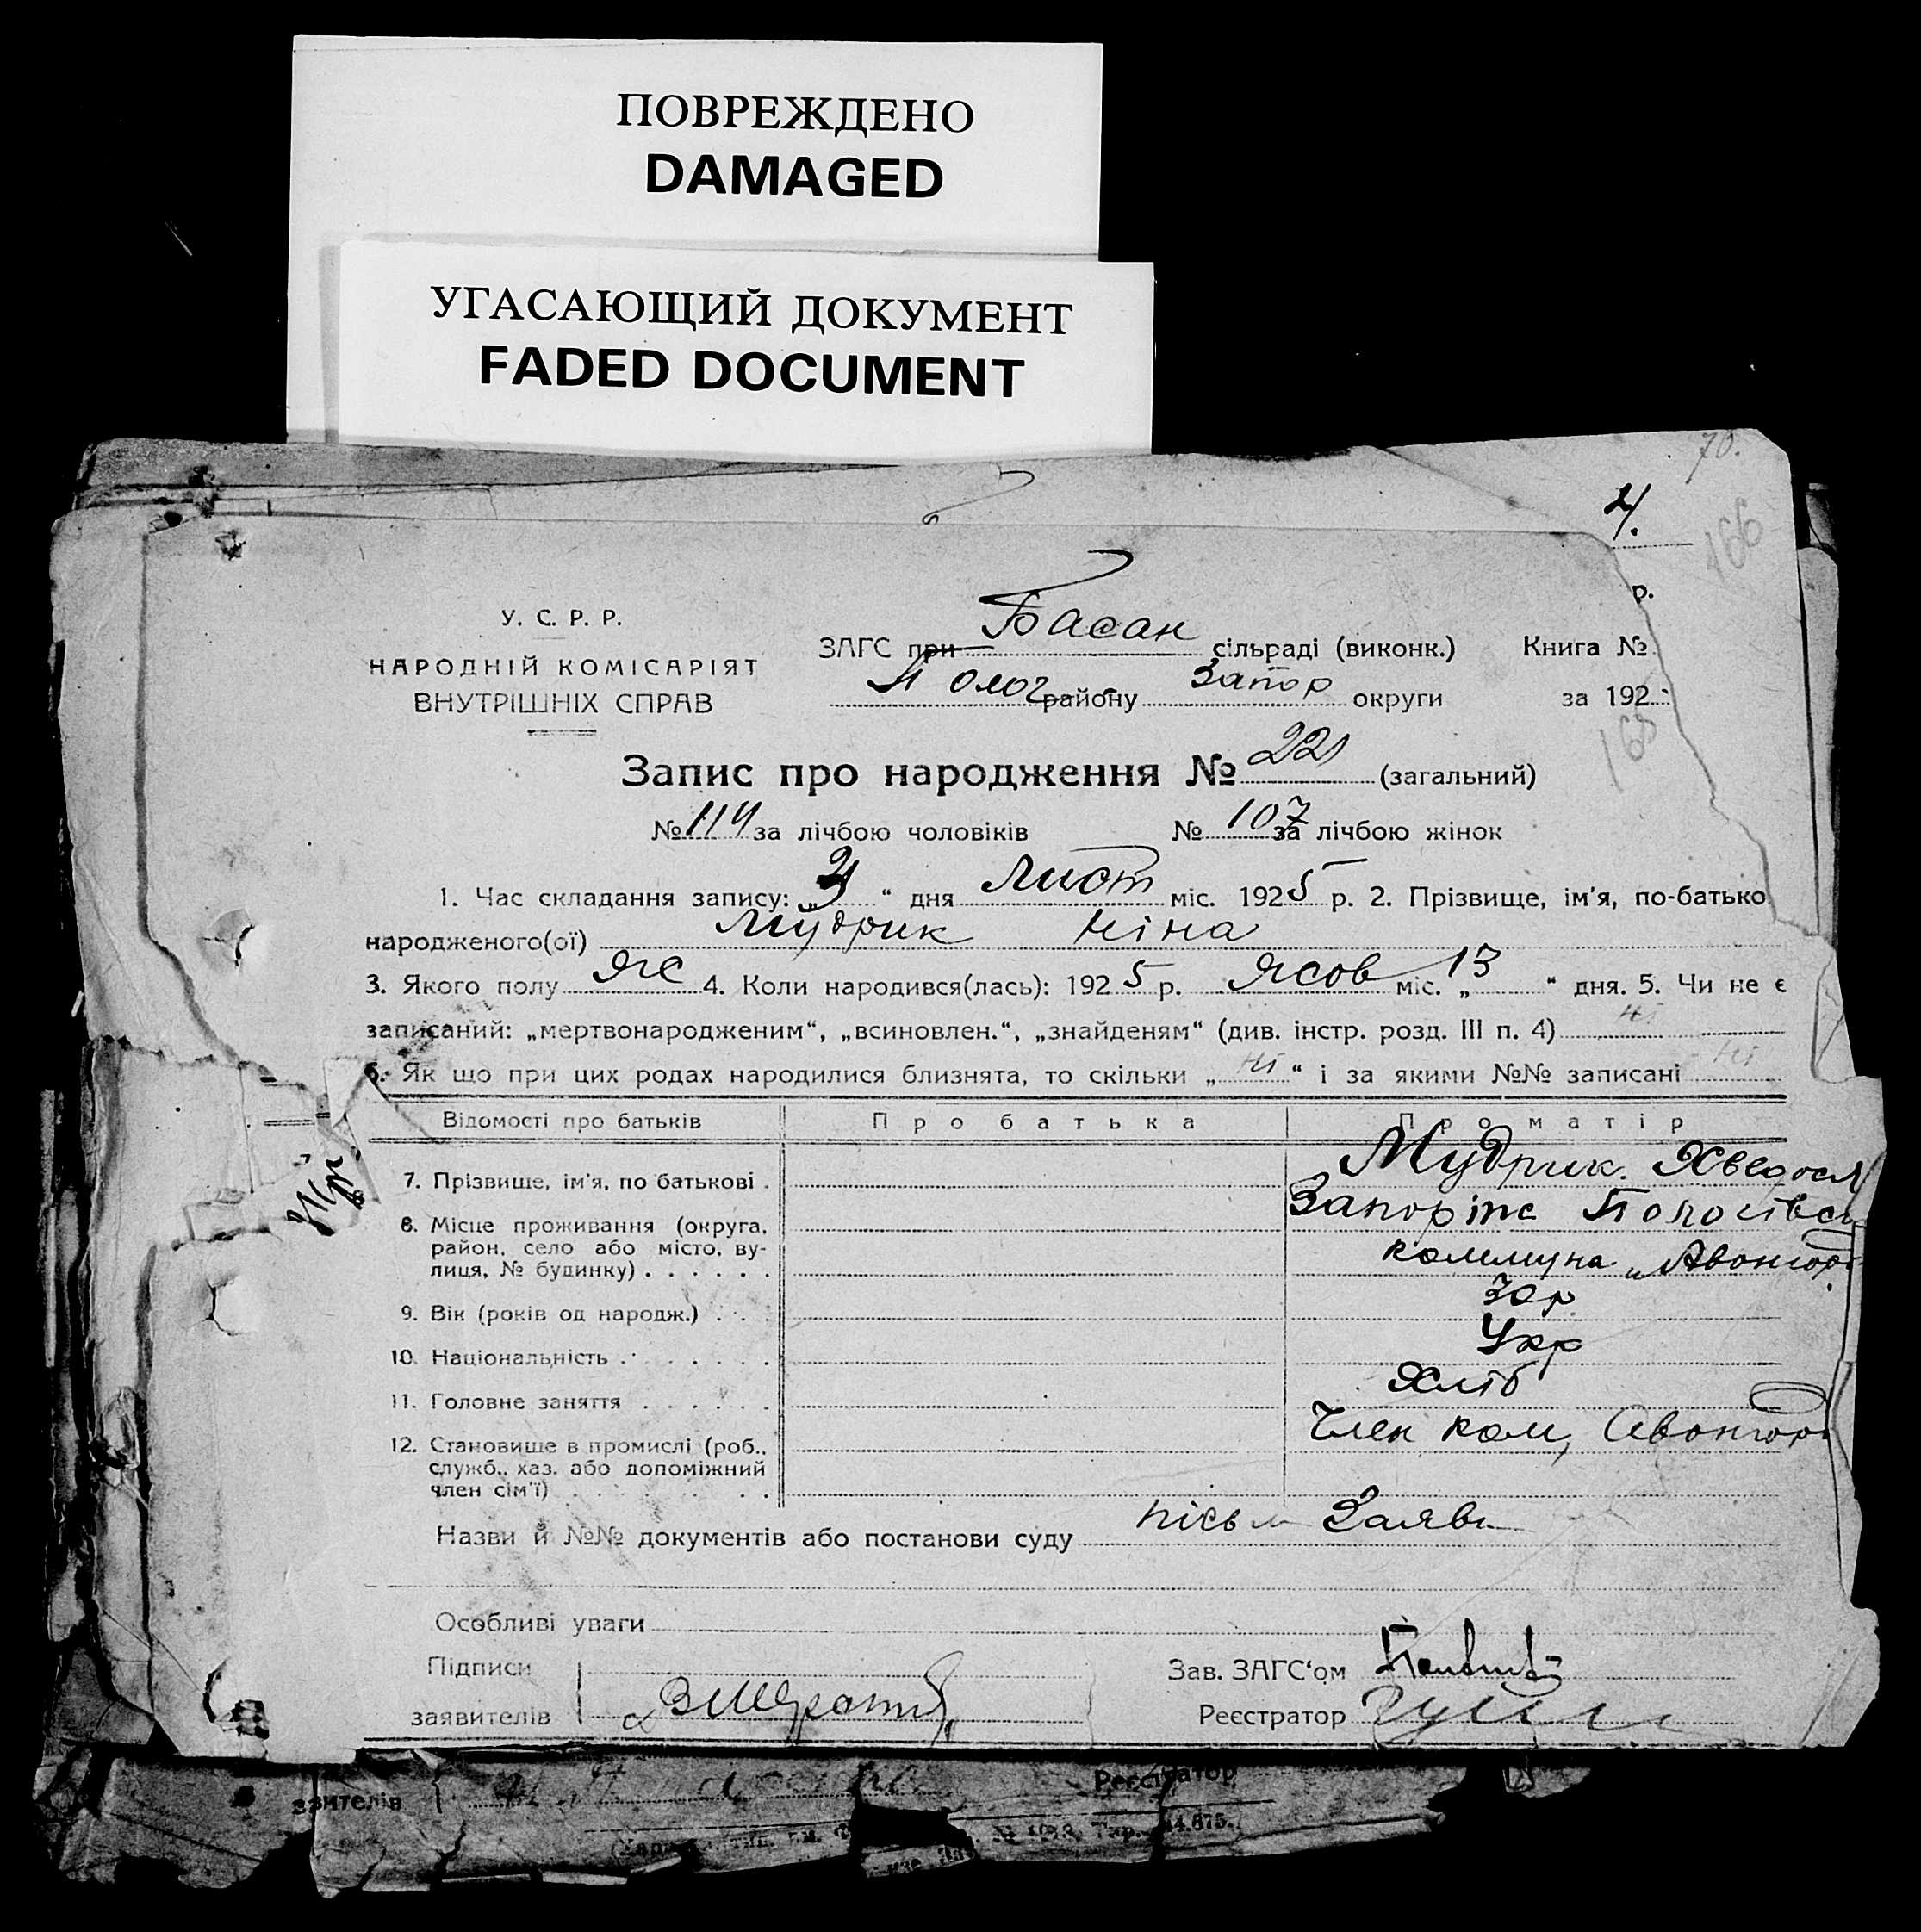 ПОВРЕЖДЕНО
DAMAGED
УГАСАЮЩИЙ ДОКУМЕНТ
FADED DOCUMENT
70.
4.
166
р.
У. С. Р. Р.
НАРОДНІЙ КОМІСАРІЯТ
ВНУТРІШНІХ СПРАВ
ЗАГС при Басан сільраді (виконк.) Книга №
Полог району Запор округи за 192
168
Запис про народження № 221 (загальний)
№ 114 за лічбою чоловіків № 107 за лічбою жінок
1. Час складання запису: „ 4 “ дня Лист міс. 1925 р. 2. Прізвище, ім'я, по-батько
народженого(ої) Мудрик Ніна
3. Якого полу Жіс 4. Коли народився(лась): 1925 р. Жсов міс. „ 13 “ дня. 5. Чи не є
записаний: „мертвонародженим“, „всиновлен.“, „знайденям“ (див. інстр. розд. III п. 4) ні
6. Як що при цих родах народилися близнята, то скільки „ ні “ і за якими №№ записані ні
Відомості про батьків Про батька Про матір
7. Прізвише, ім'я, по батькові . Мудрик Хведося
8. Місце проживання (округа, Запоріж
район, село або місто, ву- коммуна „Авонгорд
лиця, № будинку) . . . . . .
9. Вік (років од народж.) . . . 30 р
10. Національність . . . . . . . Укр
11. Головне заняття . . . . . . Хліб
12. Становище в промислі (роб., Член ком, Авонгорд
служб., хаз. або допоміжний
член сім'ї) . . . . . . . . .
Назви й №№ документів або постанови суду пісьм Заява
Особливі уваги
Підписи Зав. ЗАГС‘ом
заявителів Реєстратор
зявителів Реєстратор